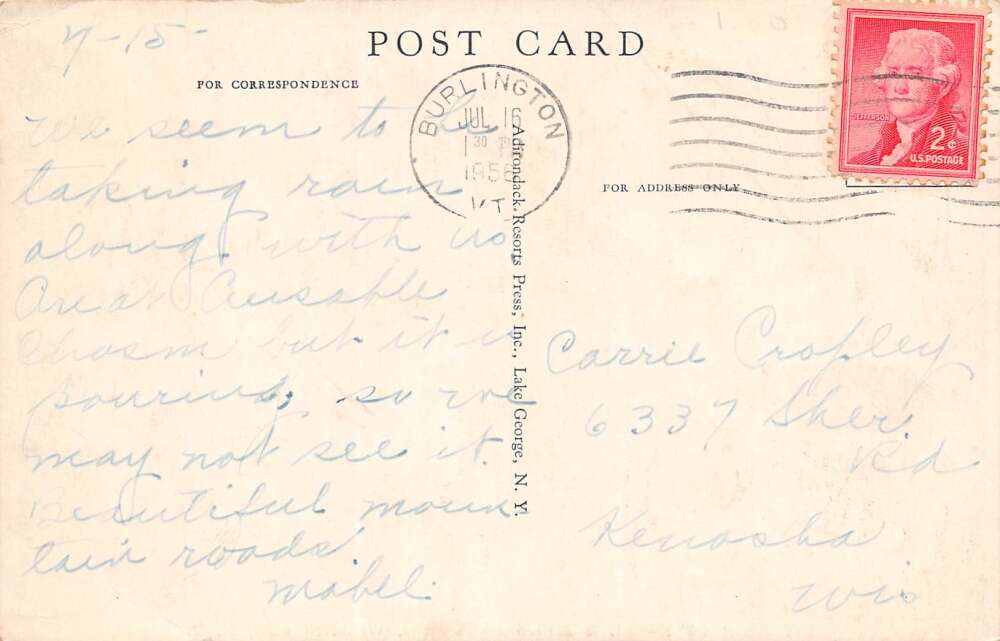 7-15-
POST CARD
FOR CORRESPONDENCE
We seem to be
taking rain
along with us.
Are at Ausable
Chasm but it is
pouring, so we
may not see it.
Beautiful moun-
tain roads.
Mabel.
BURLINGTON
JUL 16
1 30 PM
195
VT.
Adirondack Resorts Press, Inc., Lake George, N. Y.
FOR ADDRESS ONLY
JEFFERSON
2¢
U.S. POSTAGE
Carrie Cropley
6337 Sher.
Rd
Kenosha
Wis